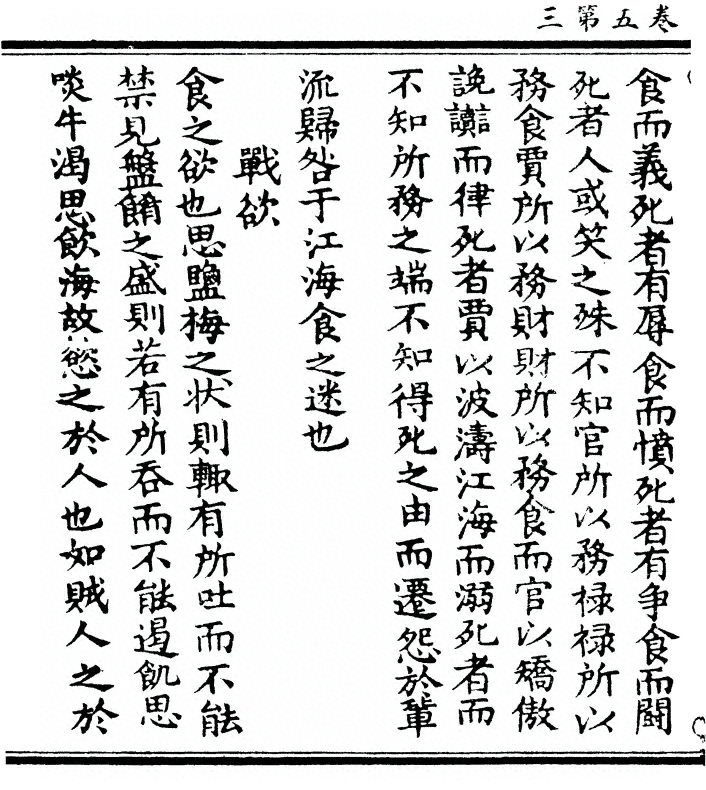 卷五第三
食而義死者有辱食而憤死者有争食而鬪
死者人或笑之殊不知官所以務禄禄所以
務食賈所以務財財所以務食而官以矯傲
而律死者賈以波濤江海而溺死者而
不知所務之端不知得死之由而遷怨於輩
流歸咎于江海食之迷也
戰欲
食之欲也思鹽梅之状則輙有所吐而不能
禁見盤餚之盛則若有所吞而不能遏飢思
啖牛渴思飲海故慾之於人也如賊人之於